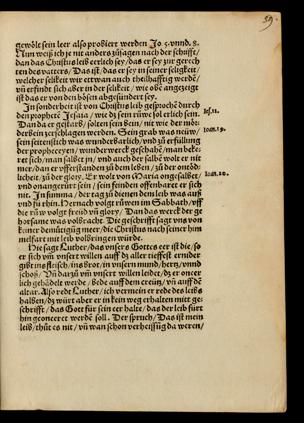 59.
gewölt sein leer also probiert werden Jo 5. vnnd. 8.
Nun weiß ich je nit anders zůsagen nach der schrifft/
dan das Christus leib eerlich sey/ das er sey zůr gerech
ten des vatters/ Das ist/ das er sey in seiner seligkeit/
welcher seligkeit wir ettwan auch theilhafftig werdē/
vñ erfindt sich aber in der seligkeit/ wie obē angezeigt
ist das er von den bösen abgesündert sey.
In sonderheit ist von Christus leib gesprochē durch
den prophetē Jesaia/ wie dz sein růwe sol erlich sein. Jes. 11.
Dan da er gestarb/ solten sein bein/ nit wie der mör-
der bein zerschlagen werden. Sein grab was neüw/ Ioan. 19.
sein seitenstich was wunderbarlich/ vnd zů erfüllung
der propheceyen/ wunderwerck geschahē/ man beke-
ret sich/ man salbet jn/ vnd auch der salbē wolt er nit
mer/ dan er vfferstanden zů dem leben/ vñ der vntöd-
licheit/ zů der glory. Er wolt von Maria ongesalbet/ Ioan. 20.
vnd onangerürt sein/ sein feinden offenbaret er sich
nit. In summa/ der tag zů dienen dem leib was auß
vnd für hin. Hernach volgt růwen im Sabbath/ vff
die růw volgt freüd vñ glory/ Dan das werck der ge
horsame was volbracht. Die geschrifft sagt vns von
keiner demütigūg meer/ die Christus nach seiner him
melfart mit leib volbringen würde.
Hie sagt Luther/ das vnsers Gottes eer ist die/ so
er sich vm̄ vnsert willen auff dz aller tieffest ernider
gibt ins fleisch/ ins brot/ in vnsern mund/ hertz/ vnnd
schoß/ Vñ darzů vm̄ vnsert willen leidet/ dz er oneer
lich gehādelt werde/ bede auff dem creütz/ vñ auff dē
altar. Also redt Luther/ ich vermein er rede des leibs
halben/ dz würt aber er in kein weg erhalten mitt ge-
schrifft/ das Gott für sein eer halt/ das der leib fürt
hin geoneeret werdē soll. Der spruch/ Das ist mein
leib/ thůt es nit/ vñ wan schon verheissūg da weren/